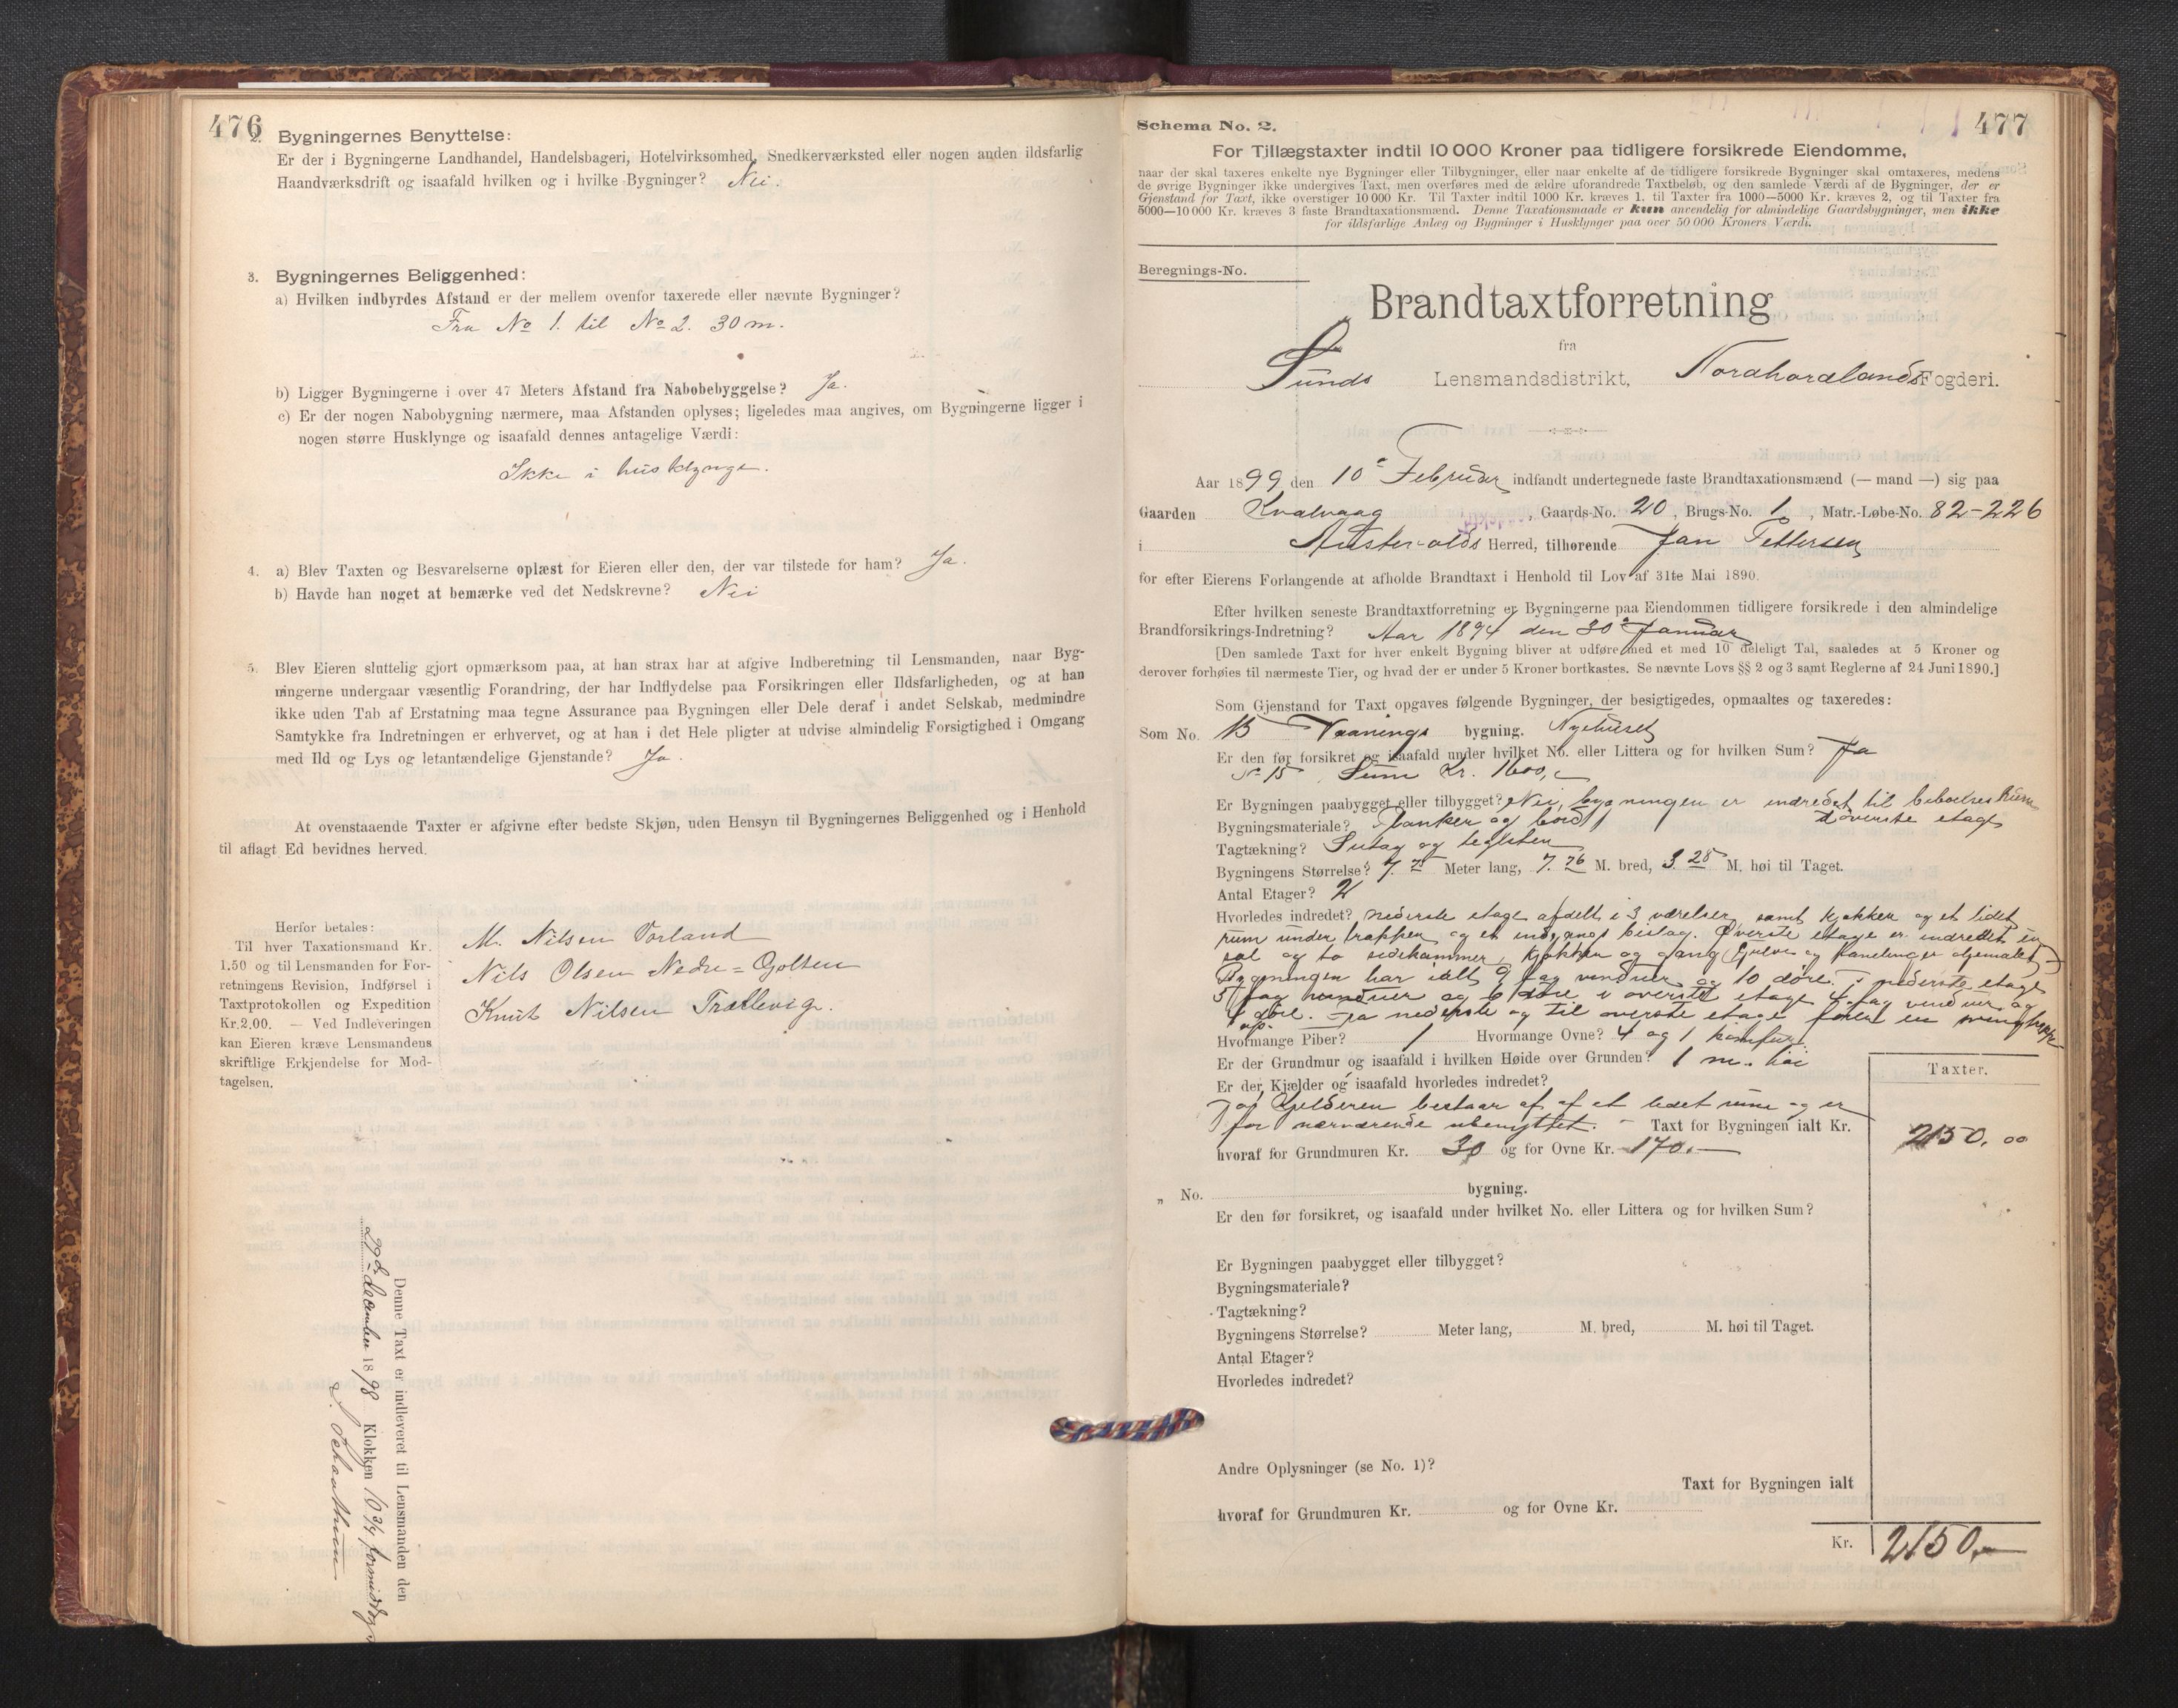 476
2. Bygningernes Benyttelse:
Er der i Bygningerne Landhandel, Handelsbageri, Hotelvirksomhed, Snedkerværksted eller nogen anden ildsfarlig
Haandværksdrift og isaafald hvilken og i hvilke Bygninger? Nei.
3. Bygningernes Beliggenhed:
a) Hvilken indbyrdes Afstand er der mellem ovenfor taxerede eller nævnte Bygninger?
Fra No 1. til No 2. 30 m.
b) Ligger Bygningerne i over 47 Meters Afstand fra Nabobebyggelse? Ja.
c) Er der nogen Nabobygning nærmere, maa Afstanden oplyses; ligeledes maa angives, om Bygningerne ligger i
nogen større Husklynge og isaafald dennes antagelige Værdi:
Ikke i husklynge.
4. a) Blev Taxten og Besvarelserne oplæst for Eieren eller den, der var tilstede for ham? Ja.
b) Havde han noget at bemærke ved det Nedskrevne? Nei
5. Blev Eieren sluttelig gjort opmærksom paa, at han strax har at afgive Indberetning til Lensmanden, naar Byg-
ningerne undergaar væsentlig Forandring, der har Indflydelse paa Forsikringen eller Ildsfarligheden, og at han
ikke uden Tab af Erstatning maa tegne Assurance paa Bygningen eller Dele deraf i andet Selskab, medmindre
Samtykke fra Indretningen er erhvervet, og at han i det Hele pligter at udvise almindelig Forsigtighed i Omgang
med Ild og Lys og letantændelige Gjenstande? Ja.
At ovenstaaende Taxter er afgivne efter bedste Skjøn, uden Hensyn til Bygningernes Beliggenhed og i Henhold
til aflagt Ed bevidnes herved.
Herfor betales:
Til hver Taxationsmand Kr.
1.50 og til Lensmanden for For-
retningens Revision, Indførsel i
Taxtprotokollen og Expedition
Kr. 2.00. — Ved Indleveringen
kan Eieren kræve Lensmandens
skriftlige Erkjendelse for Mod-
tagelsen.
M. Nilsen Vorland
Nils Olsen Nedre=Golten
Knut Nilsen Trællevig.
Denne Taxt er indleveret til Lensmanden den
22d december 1898 Klokken 10 3/4 formiddag
477
Schema No. 2.
For Tillægstaxter indtil 10 000 Kroner paa tidligere forsikrede Eiendomme,
naar der skal taxeres enkelte nye Bygninger eller Tilbygninger, eller naar enkelte af de tidligere forsikrede Bygninger skal omtaxeres, medens
de øvrige Bygninger ikke undergives Taxt, men overføres med de ældre uforandrede Taxtbeløb, og den samlede Værdi af de Bygninger, der er
Gjenstand for Taxt, ikke overstiger 10 000 Kr. Til Taxter indtil 1000 Kr. kræves 1, til Taxter fra 1000—5000 Kr. kræves 2, og til Taxter fra
5000—10 000 Kr. kræves 3 faste Brandtaxationsmænd. Denne Taxationsmaade er kun anvendelig for almindelige Gaardsbygninger, men ikke
for ildsfarlige Anlæg og Bygninger i Husklynger paa over 50 000 Kroners Værdi.
Beregnings-No.
Brandtaxtforretning
fra
Sunds Lensmandsdistrikt, Nordhordlands Fogderi.
Aar 1899 den 10de Februar indfandt undertegnede faste Brandtaxationsmænd (— mand —) sig paa
Gaarden Kvalvaag, Gaards-No. 20, Brugs-No. 1, Matr.-Løbe-No. 82-226
i Austevolds Herred, tilhørende Jan Pettersen
for efter Eierens Forlangende at afholde Brandtaxt i Henhold til Lov af 31te Mai 1890.
Efter hvilken seneste Brandtaxtforretning er Bygningerne paa Eiendommen tidligere forsikrede i den almindelige
Brandforsikrings-Indretning? Aar 1894 den 30te Januar
[Den samlede Taxt for hver enkelt Bygning bliver at udføre med et med 10 deleligt Tal, saaledes at 5 Kroner og
derover forhøies til nærmeste Tier, og hvad der er under 5 Kroner bortkastes. Se nævnte Lovs §§ 2 og 3 samt Reglerne af 24 Juni 1890.]
Som Gjenstand for Taxt opgaves følgende Bygninger, der besigtigedes, opmaaltes og taxeredes:
Som No. Vaanings bygning. Nyehuset
Er den før forsikret og isaafald under hvilket No. eller Littera og for hvilken Sum? Ja
No 15 Sum Kr. 1600,-
Er Bygningen paabygget eller tilbygget? Nei, bygningen er indredet til beboelsesrum
i øverste etage
Bygningsmateriale? Planker og bord
Tagtækning? Sutag og teglsten
Bygningens Størrelse? 7.75 Meter lang, 7.76 M. bred, 3.28 M. høi til Taget.
Antal Etager? 2
Hvorledes indredet? nederste etage afdelt i 3 værelser samt kjøkken og et lidet
rum under trappen og et indgangs bislag. Øverste etage er indredet en
sal og to sidekammer, kjøkken og gang (Gulve og panelinger oljemalet)
Bygningen har ialt 9 fag vinduer og 10 døre. I nederste etage
5 fag vinduer og 6 døre i øverste etage 4 fag vinduer og
4 døre. Fra nederste og til øverste etage fører en svingtrappe
Hvormange Piber? 1 Hvormange Ovne? 4 og 1 komfur
Er der Grundmur og isaafald i hvilken Høide over Grunden? 1 m. høi
Er der Kjælder og isaafald hvorledes indredet?
Ja, Kjelderen bestaar af af et lidet rum og er
for nærværende ubenyttet. - Taxt for Bygningen ialt Kr.
Taxter.
2150,00
hvoraf for Grundmuren Kr. 30 og for Ovne Kr. 170.—
„ No. bygning.
Er den før forsikret, og isaafald under hvilket No. eller Littera og for hvilken Sum?
Er Bygningen paabygget eller tilbygget?
Bygningsmateriale?
Tagtækning?
Bygningens Størrelse? Meter lang, M. bred, M. høi til Taget.
Antal Etager?
Hvorledes indredet?
Andre Oplysninger (se No. 1)?
Taxt for Bygningen ialt
hvoraf for Grundmuren Kr. og for Ovne Kr.
Kr. 2150,—